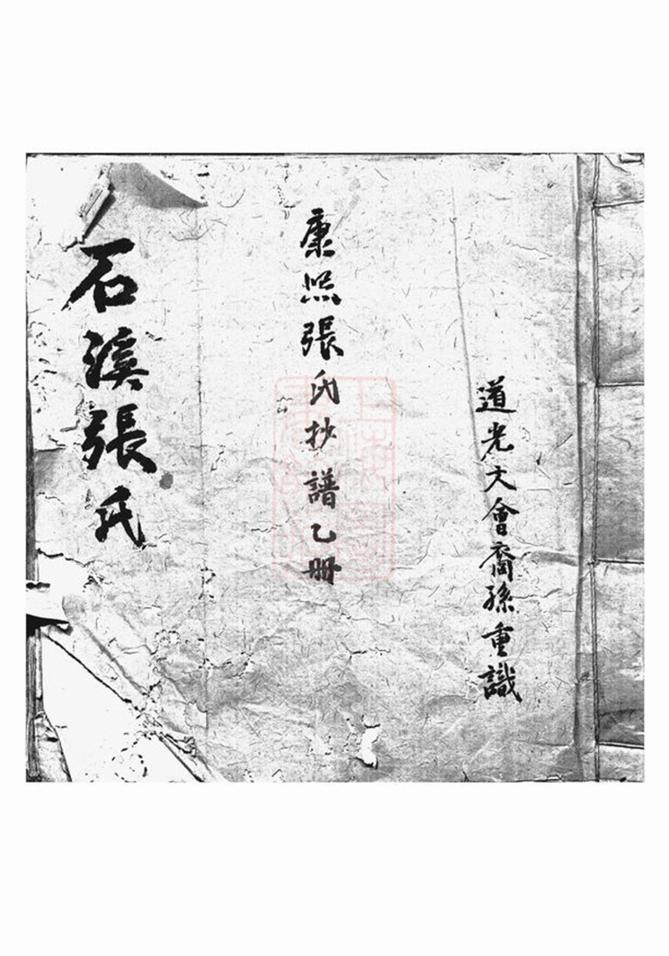 道光大會裔孫重識
康熙張氏抄譜乙册
石溪張氏